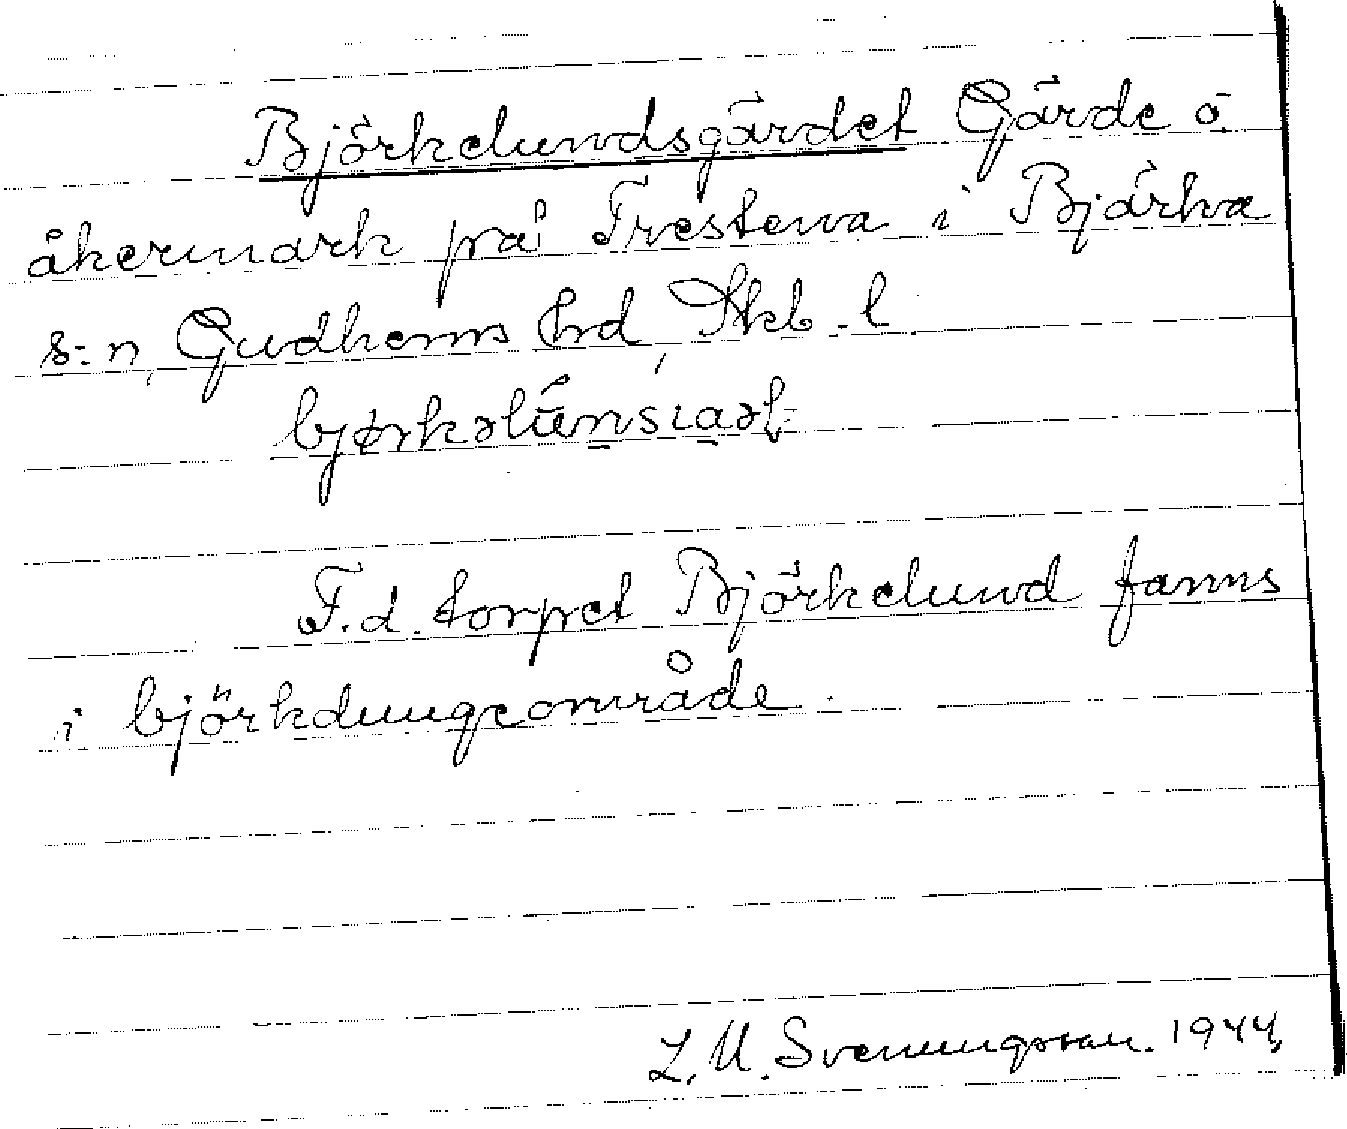 Björkelundsgärdet Gärde o
åkermark på Trestena i Bjärka
s:n, Gudhems hrd, Skb. l.
F.d. torpet Björkelund fanns
i björkdungeområde.
L. M. Svenungsson. 1944.